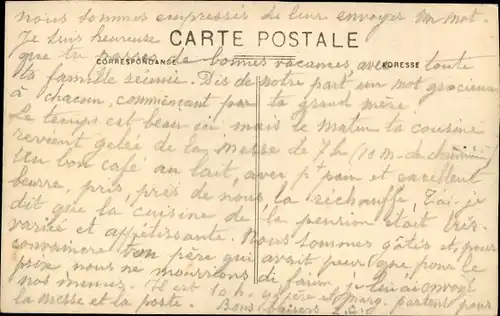 nous sommes empressés de leur envoyer un mot.
Je suis heureuse CARTE POSTALE
CORRESPONDANCE ADRESSE
que tu passes de bonnes vacances, avec toute
la famille réunie. Dis de notre part, un mot gracieux
à chacun, commençant par ta grand'mère
Le temps est beau ici mais le matin ta cousine
revient gelée de la Messe de 7h (10 m. de chemin)
Un bon café au lait, avec pt pain et excellent
beurre, pris, près de nous, la réchauffe, T'ai-je
dit que la cuisine de la pension était très
variée et appétissante. Nous sommes gâtés et, pour
convaincre ton père qui avait peur que pour ce
prix nous ne mourrions de faim, je lui ai envoyé
nos menus. Il est 10 h. gd père et Marg. partent pour
la messe et la poste. Bons baisers